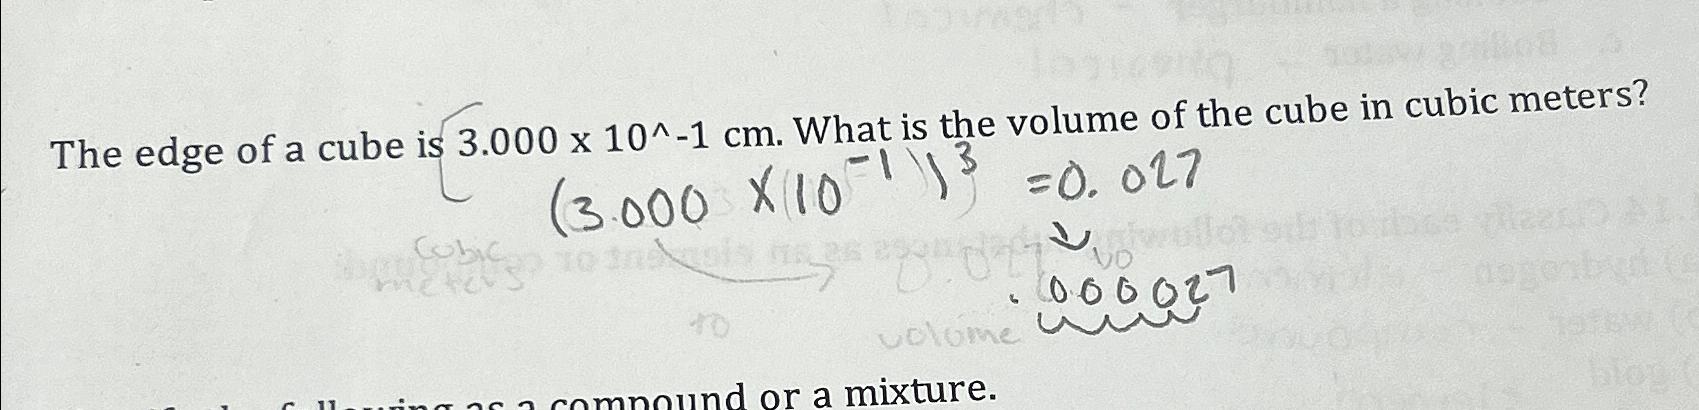 The edge of a cube is 3.000 x 10^-1 cm. What is the volume of the cube in cubic meters?
(3.000 X (10⁻¹))³ = 0.027
cubic
meters
.000027
to
volume
as a compound or a mixture.